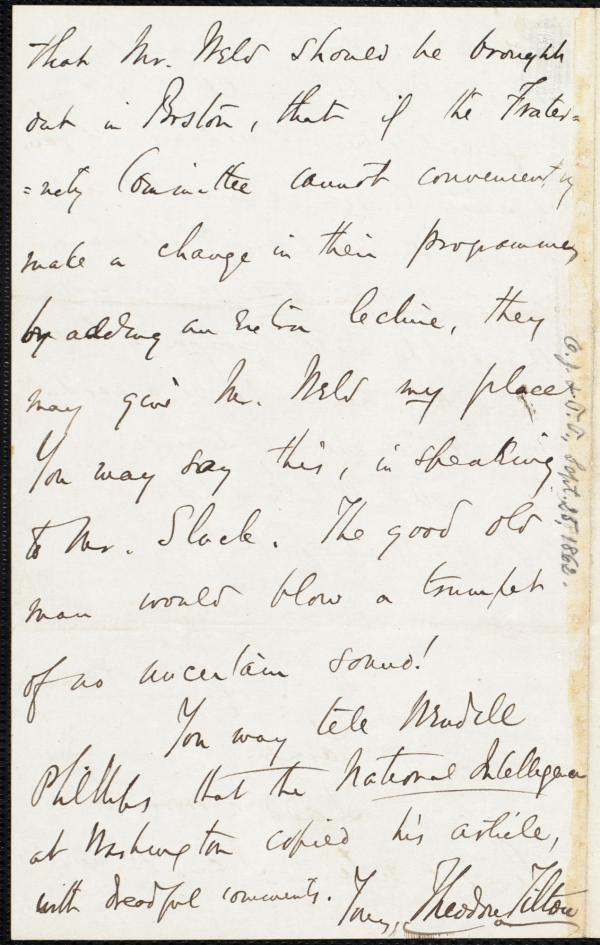 that Mr. Weld should be brought
out in Boston, that if the Frater=
=nity Committee cannot conveniently
make a change in their programmes
by adding an extra lecture, they
may give Mr. Weld my place.
You may say this, in speaking
to Mr. Slack. The good old
man would blow a trumpet
of no uncertain sound!
You may tell Wendell
Phillips that the National Intelligencer
at Washington copied his article,
with dreadful comments. Yours, Theodore Tilton
Sept. 25, 1862.